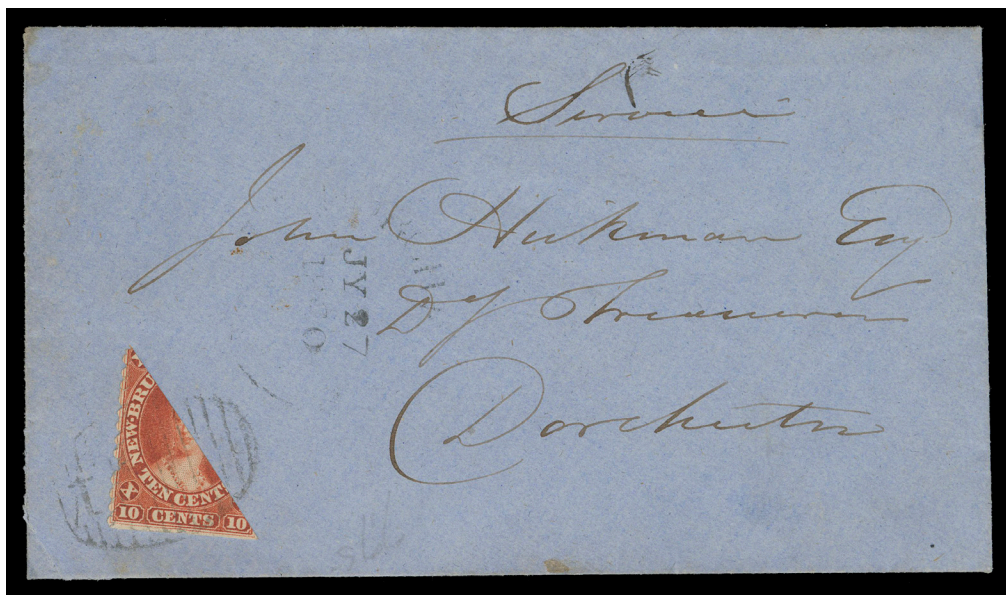 Service
John Hickman Esq
Dy Treasurer
Dorchester
JY 27
NEW·BRU
TEN CENT
10 CENTS 10